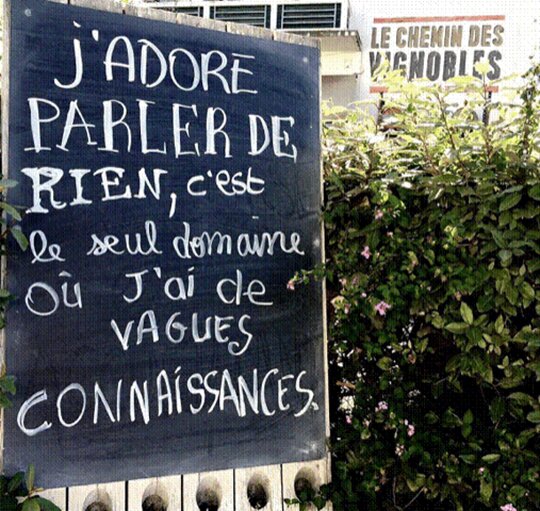 J'ADORE
PARLER DE
RIEN, c'est
le seul domaine
où J'ai de
VAGUES
CONNAISSANCES.
LE CHEMIN DES
VIGNOBLES